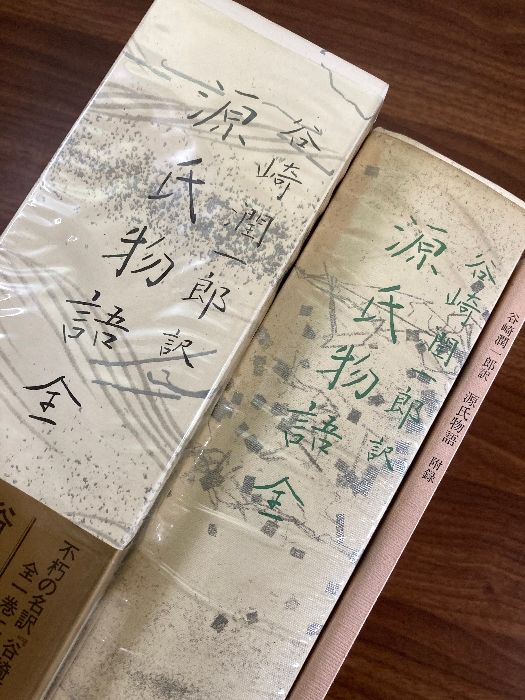 谷崎潤一郎訳
源氏物語 全
不朽の名訳『谷崎
全一巻
谷崎潤一郎訳
源氏物語 全
谷崎潤一郎訳 源氏物語 附録